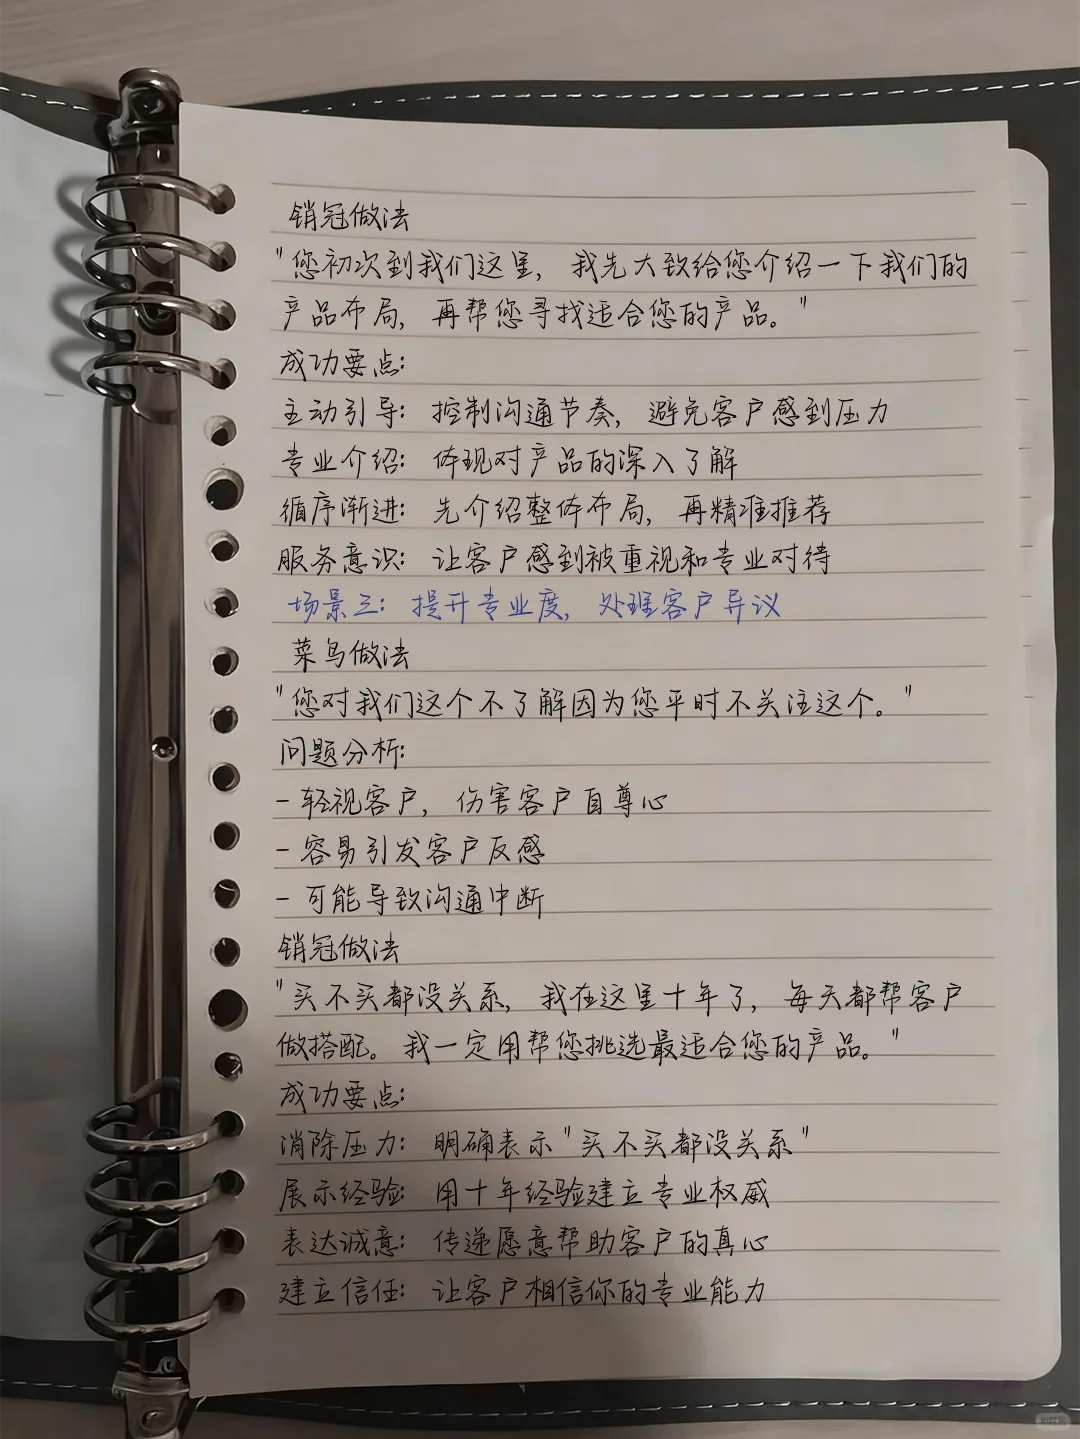 销冠做法
"您初次到我们这里，我先大致给您介绍一下我们的
产品布局，再帮您寻找适合您的产品。"
成功要点：
主动引导：控制沟通节奏，避免客户感到压力
专业介绍：体现对产品的深入了解
循序渐进：先介绍整体布局，再精准推荐
服务意识：让客户感到被重视和专业对待
场景三：提升专业度，处理客户异议
菜鸟做法
"您对我们这个不了解因为您平时不关注这个。"
问题分析：
- 轻视客户，伤害客户自尊心
- 容易引发客户反感
- 可能导致沟通中断
销冠做法
"买不买都没关系，我在这里十年了，每天都帮客户
做搭配。我一定用帮您挑选最适合您的产品。"
成功要点：
消除压力：明确表示"买不买都没关系"
展示经验：用十年经验建立专业权威
表达诚意：传递愿意帮助客户的真心
建立信任：让客户相信你的专业能力